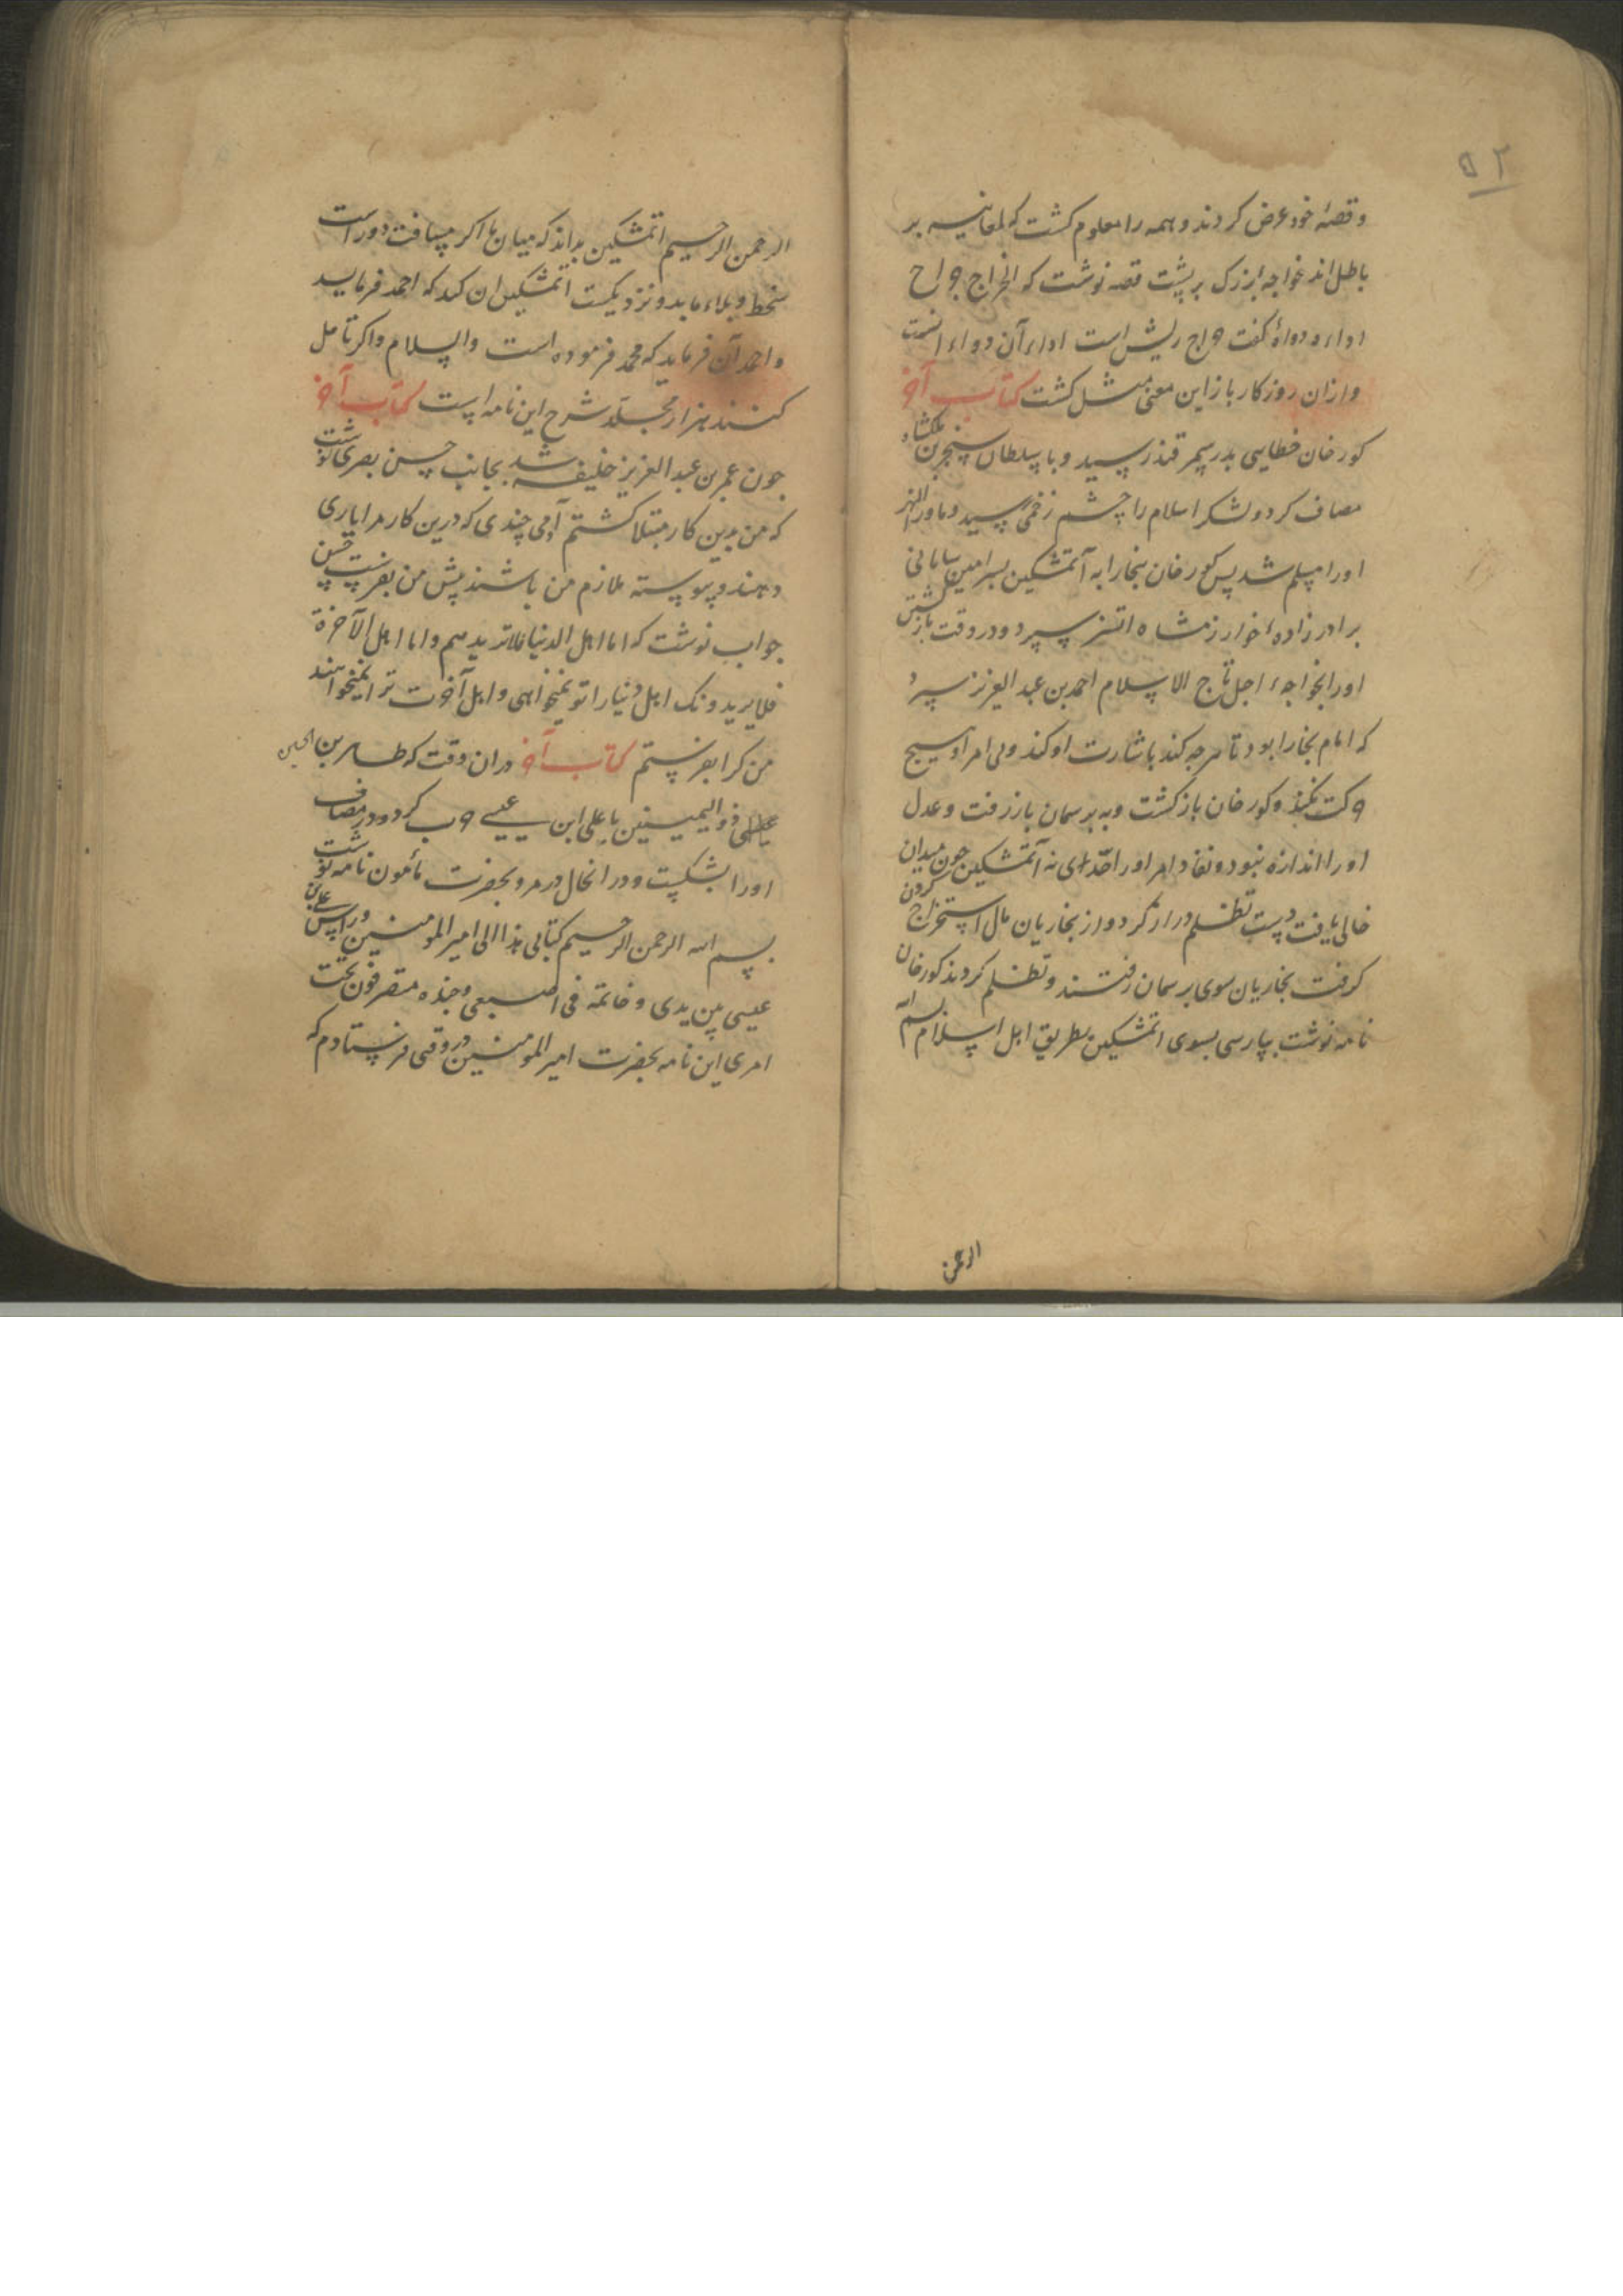 ۵۲
و قصهٔ خود عرض کردند و همه را معلوم کشت که لمغانیه بر
باطل اند خواجه بزرک بر پشت قصه نوشت که الخراج جراح
اداءه دواءه کفت خراج ریش است اداء آن دواء انست
و ازان روزکار باز این معنی مثل کشت کتاب آخر
کورخان خطایی بدر سمرقند رسید و با سلطان سنجر بن ملکشاه
مصاف کرد و لشکر اسلام را چشم زخمی رسید و ماوراالنهر
اورا مسلم شد پس کورخان بخارا به آتمشکین بسر امین بیابانی
برادر زاده خوارزمشاه اتسز سپرد و در وقت باز کشتن
اورا بخواجه اجل تاج الاسلام احمد بن عبد العزیز سپرد
که امام بخارا بود تا هرجه کند باشارت او کند و بی امر او هیچ
حرکت نکند و کورخان باز کشت و به برسمان باز رفت و عدل
اورا اندازه نبود و نفاد امر اورا حدی نه آتمشکین جون میدان
خالی یافت دست تظلم دراز کرد و از بخاریان مال استخراج کردن
کرفت بخاریان سوی برسمان رفتند و تظلم کردند کورخان
نامه نوشت بپارسی بسوی اتمشکین بطریق اهل اسلام بسم الله
الرحمن
الرحمن الرحیم اتمشکین بداند که میان ما اکر مسافت دور است
سخط و بلاء ما بدو نزدیکست اتمشکین ان کند که احمد فرماید
و احمد آن فرماید که محمد فرموده است والسلام و اکر تامل
کنند هزار مجلد شرح این نامه است کتاب آخر
جون عمر بن عبد العزیز خلیفه شد بجانب حسن بصری نوشت
که من بدین کار مبتلا کشتم آدمی چندی که درین کار مرا یاری
دهند و پیوسته ملازم من باشند پیش من بفرست حسن
جواب نوشت که اما اهل الدنیا فلا تریدهم و اما اهل الآخرة
فلا یریدونک اهل دنیا را تو نمیخواهی و اهل آخرت ترا نمیخواهند
من کرا بفرستم کتاب آخر دران وقت که طاهر بن الحسین
ذوالیمینین با علی ابن عیسی حرب کرد و در مصاف
اورا بشکست و در انحال در مرو بحضرت مأمون نامه نوشت
بسم الله الرحمن الرحیم کتابی هذا الی امیر المومنین و راس علی بن
عیسی بین یدی و خاتمه فی اصبعی و جنده متصرفون تحت
امری این نامه بحضرت امیر المومنین در وقتی فرستادم که